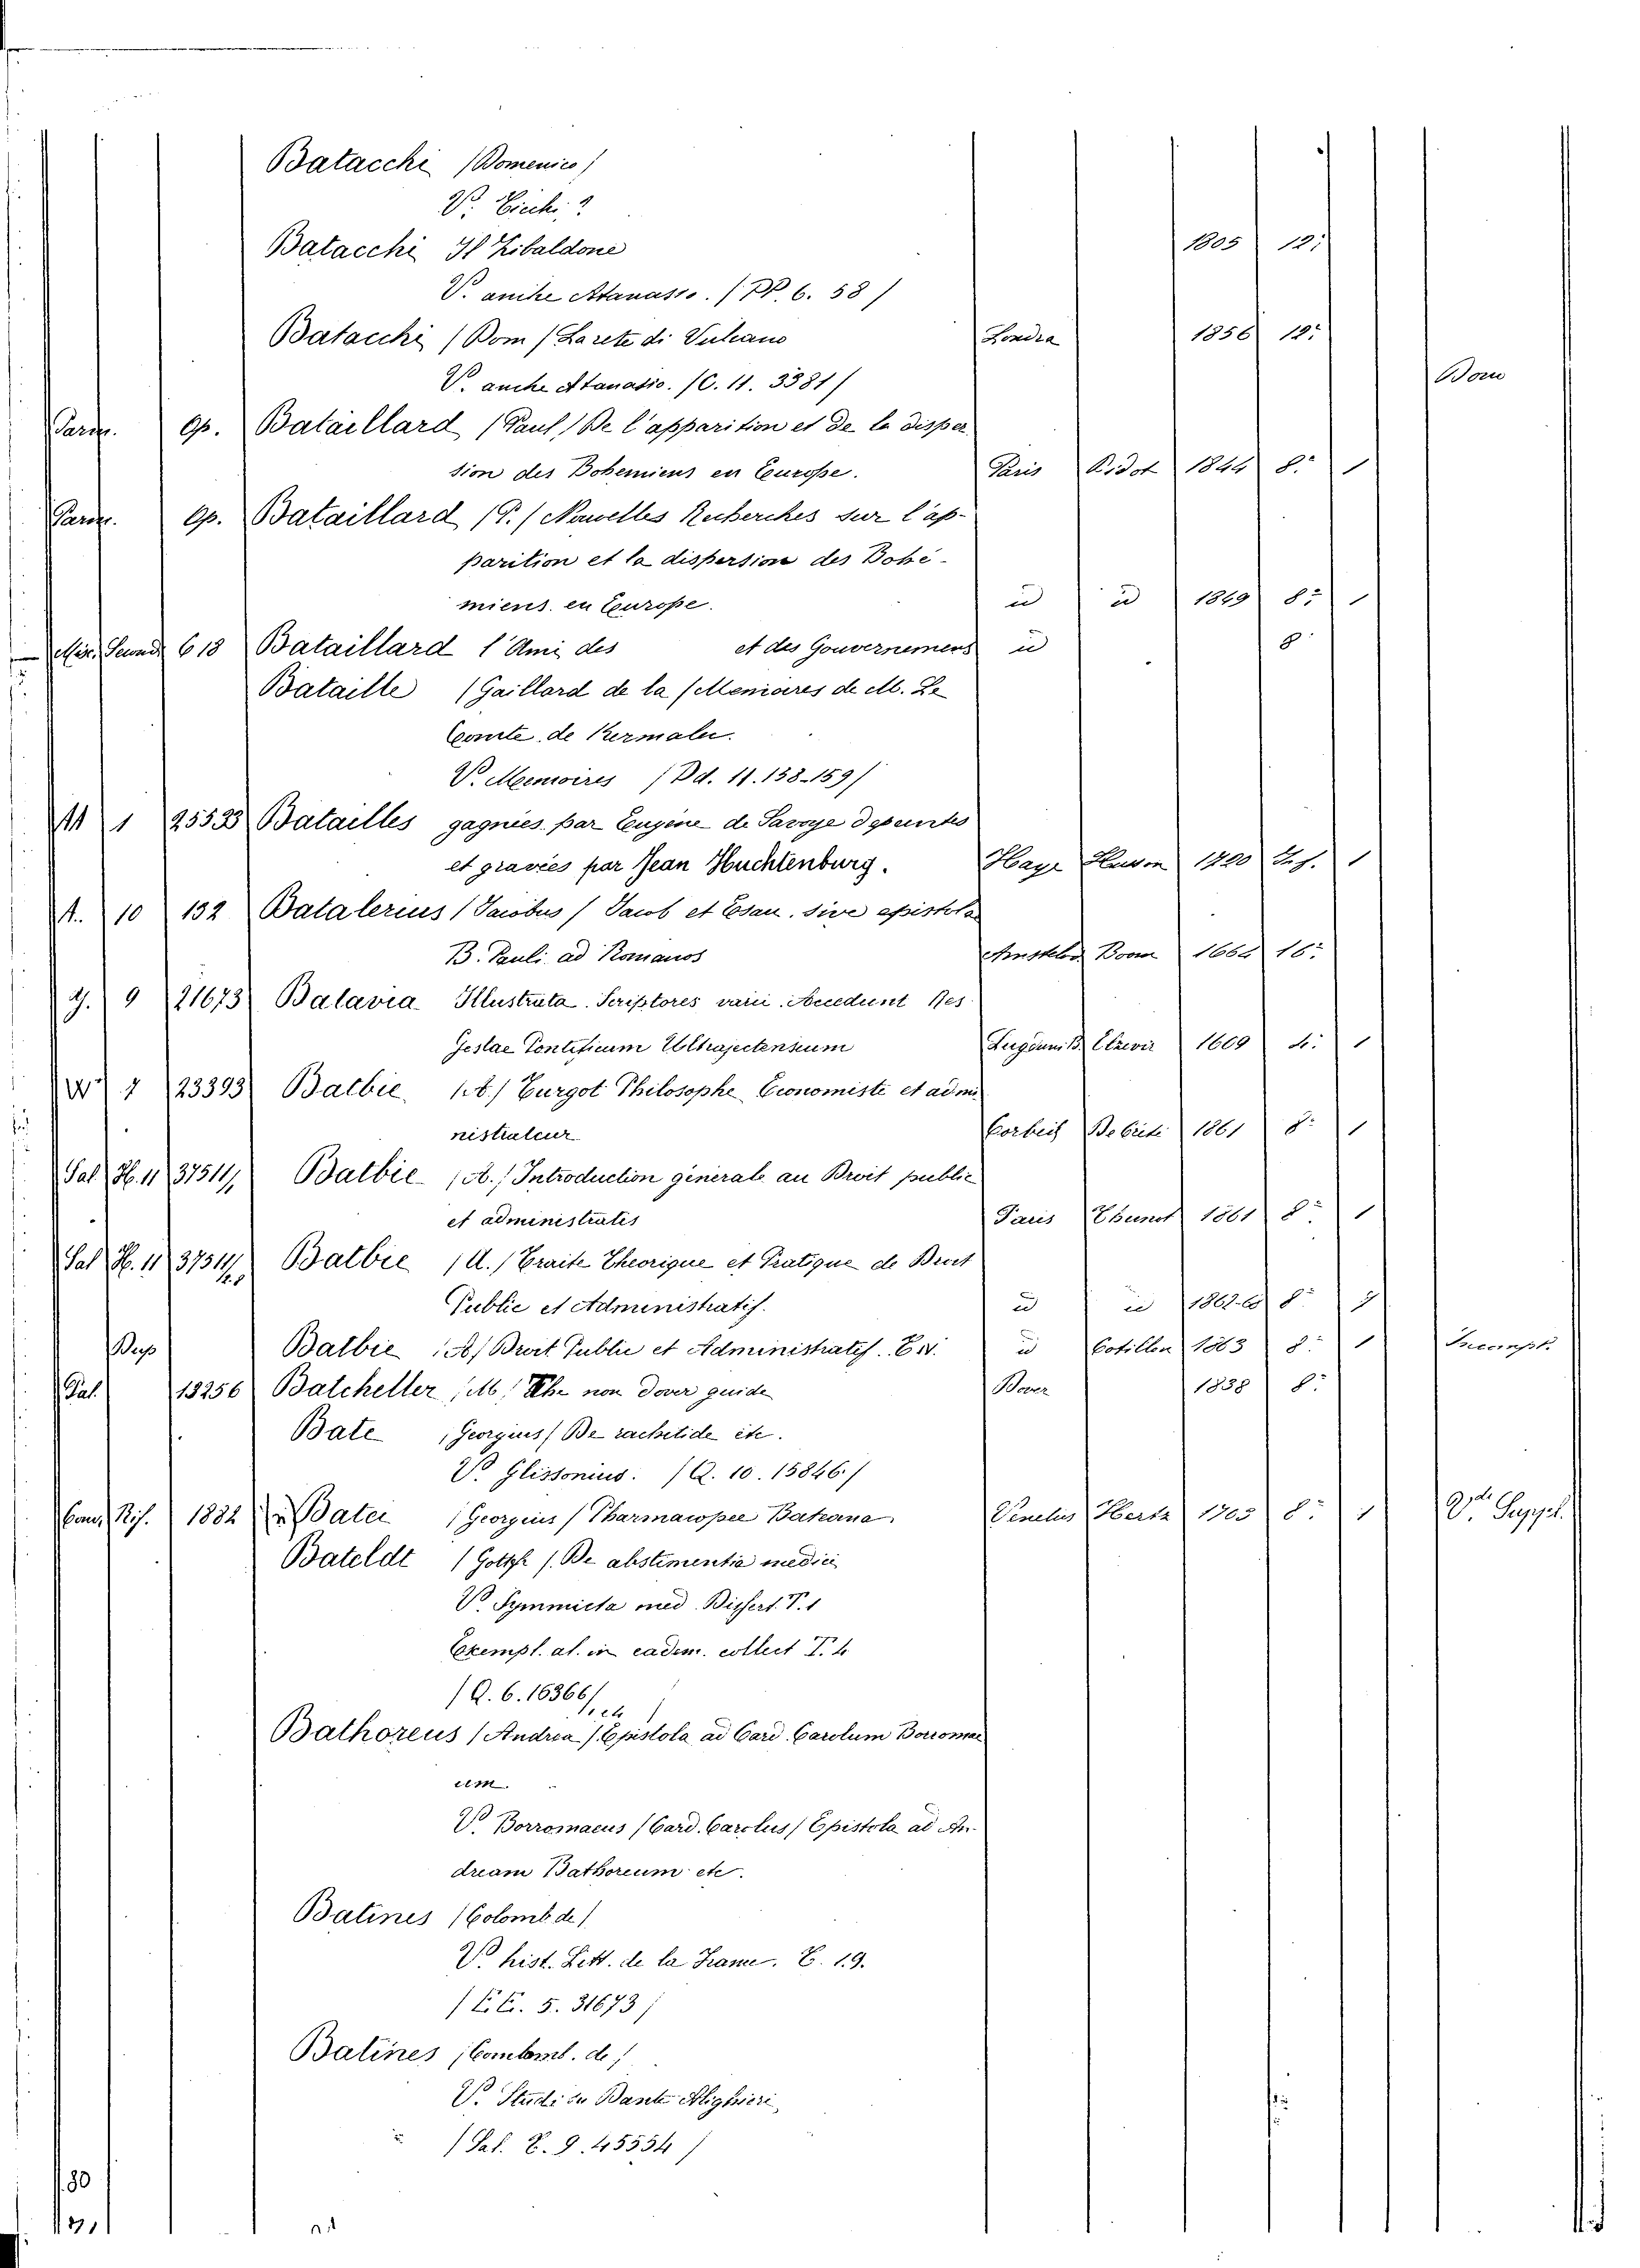 Batacchi (Domenico)
V. Cicchi ?
Batacchi Il Zibaldone 1805 12:
V. anche Atanasio. (PP. 6. 58)
Batacchi (Dom) Larete di Vulcano Londra 1856 12:
V. anche Atanasio. (C. 11. 3381) Dom
Parm. Op. Bataillard (Paul) De l'apparition et de la disper
sion des Bohemiens en Europe. Paris Didot 1844 8: 1
Parm. Op. Bataillard (P.) Nouvelles Recherches sur l'ap-
parition et la dispersion des Bohé-
miens en Europe. id id 1849 8: 1
618 Bataillard l'Ami des et des Gouvernemens id 8:
Bataille (Gaillard de la) Memoires de M. Le
Comte de Kermale.
V. Memoires (Dd. 11. 158-159)
11 1 25533 Batailles gagnées par Eugene de Savoye depeintes
et gravées par Jean Huchtenburg. Haye Husson 1720 1
A. 10 132 Batalerius (Jacobus) Jacob et Esau. sive epistola
B. Pauli ad Romanos Amstelod Boom 1664 16:
J. 9 21673 Batavia Illustrata. Scriptores varii. Accedunt Res
Gestae Pontificum Ultrajectensium Lugduni B. Elzevir 1609 4: 1
W 7 23393 Batbie (A.) Turgot Philosophe Economiste et admi
nistrateur Corbeil 1861 8: 1
Sal H. 11 37511/1 Batbie (A.) Introduction générale au Droit public
et administratis Paris 1861 8: 1
Sal H. 11 37511/2.8 Batbie (A.) Traité Theorique et Pratique de Droit
Public et Administratif. id id 1862-68 8: 7
Dup Batbie (A) Droit Public et Administratif. T. IV. id Cotillon 1863 8: 1 Incompl.
Pal. 13256 Batcheller (M) The non dover guide Dover 1838 8:
Bate (Georgius) De rachitide etc.
V. Glissonius. (Q. 10. 15846.)
Cam. Rif. 1882 Batei (Georgius) Pharmacopee Bateana Venetiis Hertz 1703 8: 1 Suppl.
Bateldt (Gottfr). De abstimentia medici
V. Symmicta med. Dissert. T. 1
Exempl. al. in eadem. collect T. 4
(Q. 6. 16366)
Bathoreus (Andrea) Epistola ad Card. Carolum Borromae
um.
V. Borromaeus (Card. Carolus) Epistola ad An-
dream Bathoreum etc.
Batines (Colomb de)
V. hist. Litt. de la France. T. 19.
(E. E. 5. 31673)
Batines (Comlomb. de)
V. Studi su Dante Alighieri
(Sal. E. 9. 45554)
80